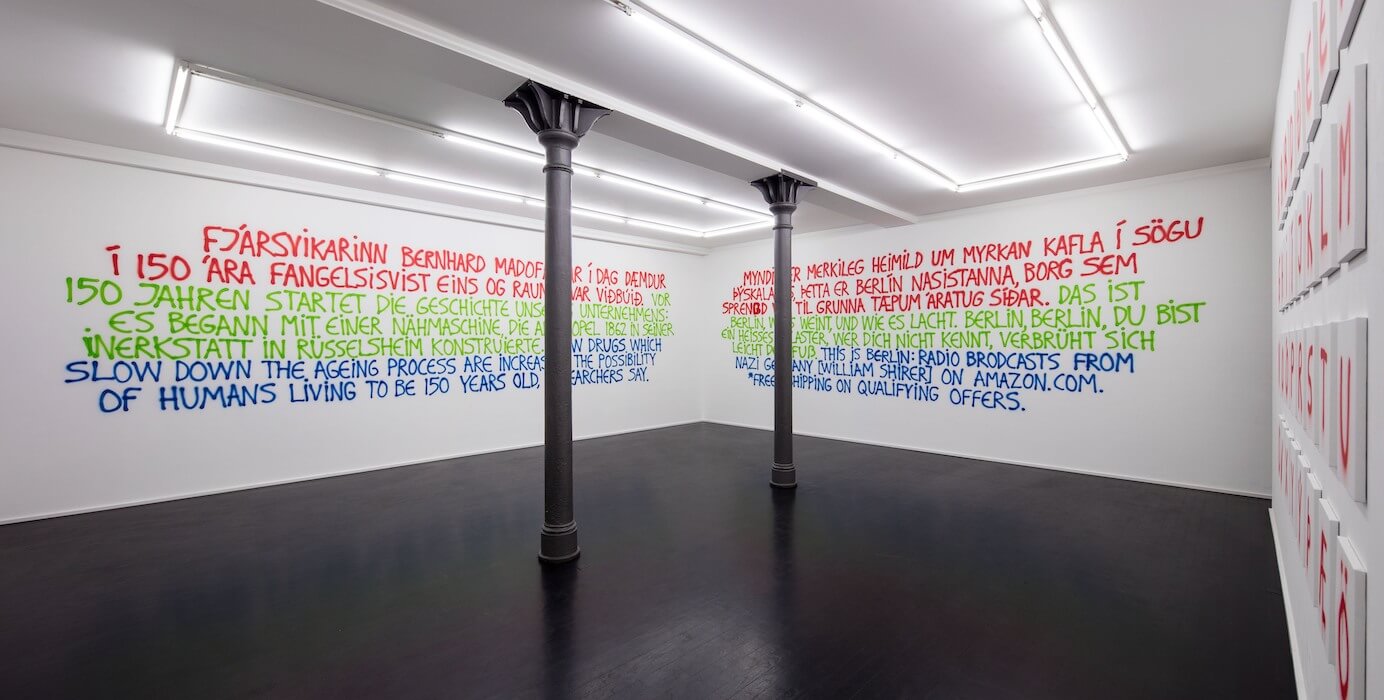 FJÁRSVIKARINN BERNHARD MADOF Í DAG DÆMDUR
Í 150 ÁRA FANGELSISVIST EINS OG RAUN VAR VIÐBÚIÐ. VOR
150 JAHREN STARTET DIE GESCHICHTE UNSE UNTERNEHMENS:
ES BEGANN MIT EINER NÄHMASCHINE, DIE A OPEL 1862 IN SEINER
WERKSTATT IN RÜSSELSHEIM KONSTRUIERTE. W DRUGS WHICH
SLOW DOWN THE AGEING PROCESS ARE INCREAS THE POSSIBILITY
OF HUMANS LIVING TO BE 150 YEARS OLD, EARCHERS SAY.
MYNDI ER MERKILEG HEIMILD UM MYRKAN KAFLA Í SÖGU
ÞÝSKALA ÞETTA ER BERLÍN NASISTANNA, BORG SEM
SPRENGD V TIL GRUNNA TÆPUM ÁRATUG SÍÐAR. DAS IST
BERLIN, W WEINT, UND WIE ES LACHT. BERLIN, BERLIN, DU BIST
EIN HEISSES ASTER, WER DICH NICHT KENNT, VERBRÜHT SICH
LEICHT D FUß. THIS IS BERLIN: RADIO BRODCASTS FROM
NAZI GE ANY [WILLIAM SHIRER] ON AMAZON.COM.
*FREE SHIPPING ON QUALIFYING OFFERS.
K L M
P R S T U
Ö